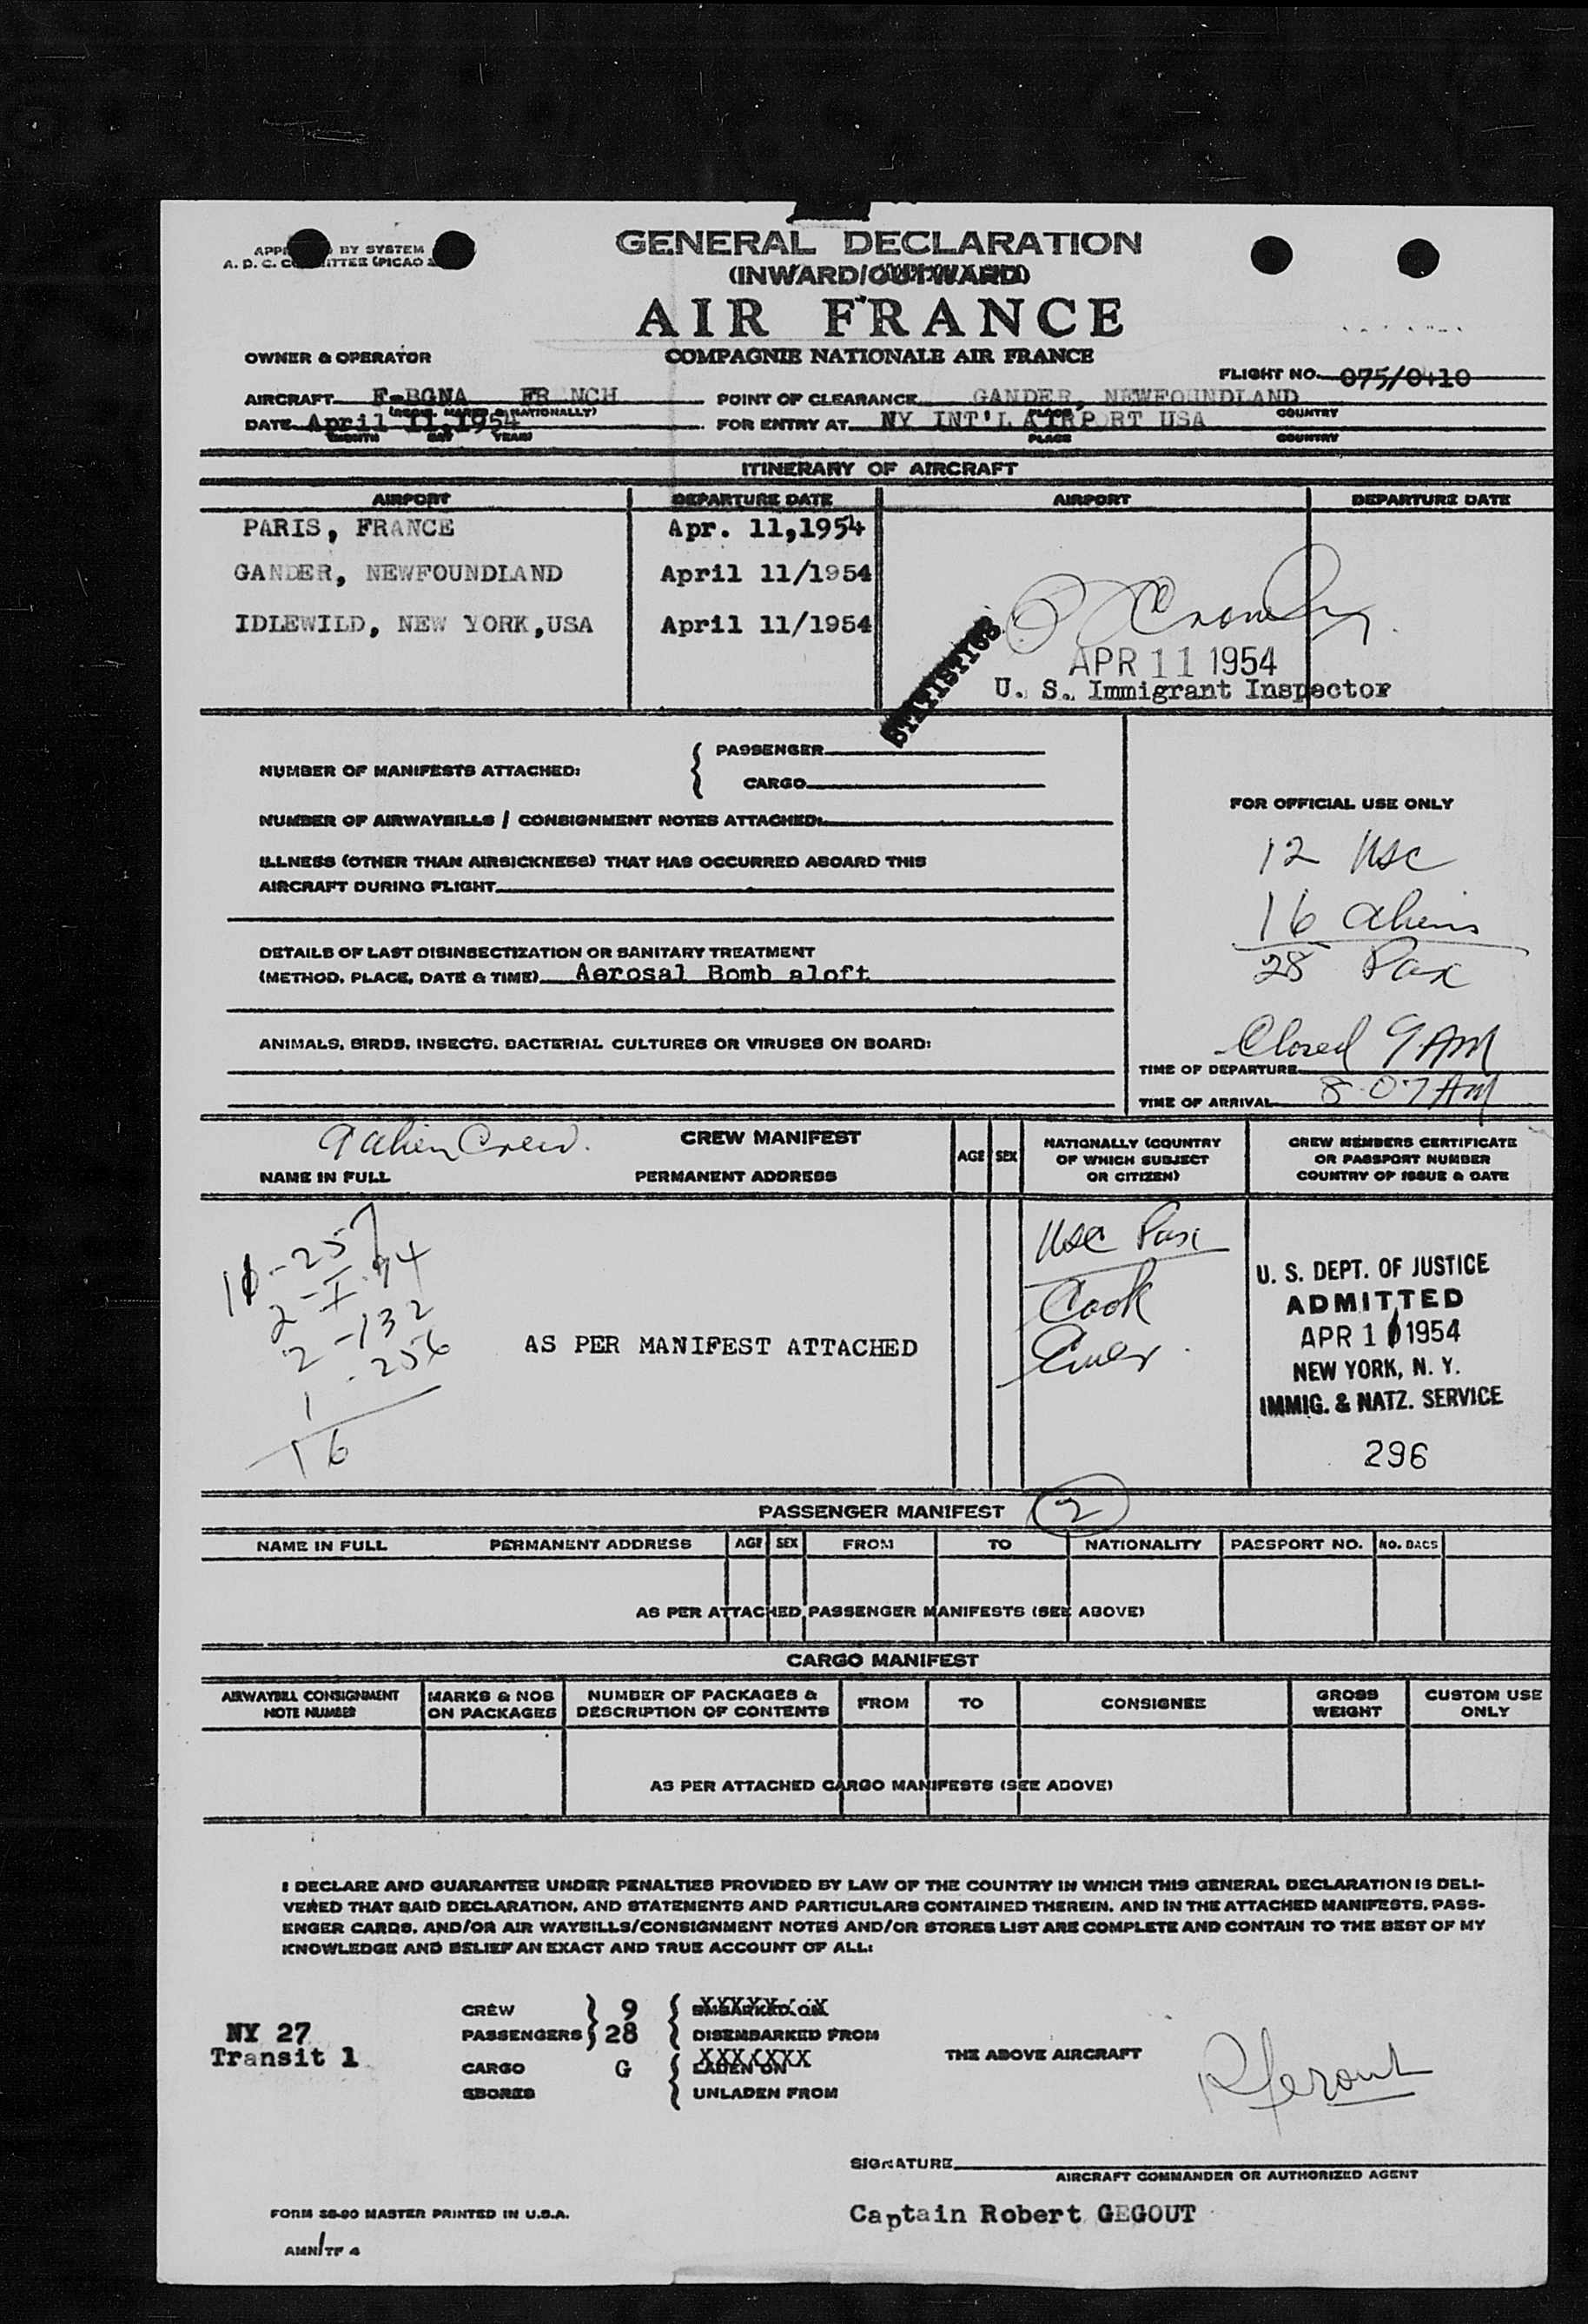 GENERAL DECLARATION
BY SYSTEM
(INWARD/OUTWARD)
AIR FRANCE
OWNER & OPERATOR
COMPAGNIE NATIONALE AIR FRANCE
FLIGHT NO. 075/0410
AIRCRAFT F-BGNA FR NCH POINT OF CLEARANCE GANDER, NEWFOUNDLAND
PLACE COUNTRY
DATE April 11,1954 FOR ENTRY AT NY INT'L AIRPORT USA
MONTH DAY YEAR PLACE COUNTRY
ITINERARY OF AIRCRAFT
AIRPORT DEPARTURE DATE AIRPORT DEPARTURE DATE
PARIS, FRANCE Apr. 11,1954
GANDER, NEWFOUNDLAND April 11/1954
IDLEWILD, NEW YORK,USA April 11/1954
STATISTICS
APR 11 1954
U. S. Immigrant Inspector
NUMBER OF MANIFESTS ATTACHED:
PASSENGER
CARGO
FOR OFFICIAL USE ONLY
NUMBER OF AIRWAYBILLS / CONSIGNMENT NOTES ATTACHED:
12 USC
ILLNESS (OTHER THAN AIRSICKNESS) THAT HAS OCCURRED ABOARD THIS
AIRCRAFT DURING FLIGHT
16 aliens
28 Pax
DETAILS OF LAST DISINSECTIZATION OR SANITARY TREATMENT
(METHOD, PLACE, DATE & TIME) Aerosal Bomb aloft
ANIMALS, BIRDS, INSECTS, BACTERIAL CULTURES OR VIRUSES ON BOARD:
Closed 9 AM
TIME OF DEPARTURE
TIME OF ARRIVAL 8-07 AM
9 alien Crew.
CREW MANIFEST
NAME IN FULL PERMANENT ADDRESS AGE SEX
NATIONALLY (COUNTRY
OF WHICH SUBJECT
OR CITIZEN)
CREW MEMBERS CERTIFICATE
OR PASSPORT NUMBER
COUNTRY OF ISSUE & DATE
- 257
2 -
2 - 132
1 - 256
16
AS PER MANIFEST ATTACHED
Cook
U. S. DEPT. OF JUSTICE
ADMITTED
APR 11 1954
NEW YORK, N. Y.
IMMIG. & NATZ. SERVICE
296
PASSENGER MANIFEST 2
NAME IN FULL PERMANENT ADDRESS AGE SEX FROM TO NATIONALITY PASSPORT NO. NO. BAGS
AS PER ATTACHED PASSENGER MANIFESTS (SEE ABOVE)
CARGO MANIFEST
AIRWAYBILL CONSIGNMENT
NOTE NUMBER
MARKS & NOS
ON PACKAGES
NUMBER OF PACKAGES &
DESCRIPTION OF CONTENTS
FROM TO CONSIGNEE
GROSS
WEIGHT
CUSTOM USE
ONLY
AS PER ATTACHED CARGO MANIFESTS (SEE ABOVE)
I DECLARE AND GUARANTEE UNDER PENALTIES PROVIDED BY LAW OF THE COUNTRY IN WHICH THIS GENERAL DECLARATION IS DELI-
VERED THAT SAID DECLARATION, AND STATEMENTS AND PARTICULARS CONTAINED THEREIN, AND IN THE ATTACHED MANIFESTS, PASS-
ENGER CARDS, AND/OR AIR WAYBILLS/CONSIGNMENT NOTES AND/OR STORES LIST ARE COMPLETE AND CONTAIN TO THE BEST OF MY
KNOWLEDGE AND BELIEF AN EXACT AND TRUE ACCOUNT OF ALL:
NY 27
Transit 1
CREW 9 EMBARKED ON
PASSENGERS 28 DISEMBARKED FROM
CARGO G LADEN ON
SBORES UNLADEN FROM
THE ABOVE AIRCRAFT
SIGNATURE
AIRCRAFT COMMANDER OR AUTHORIZED AGENT
Captain Robert GEGOUT
FORM 36-90 MASTER PRINTED IN U.S.A.
AMN/TF 4